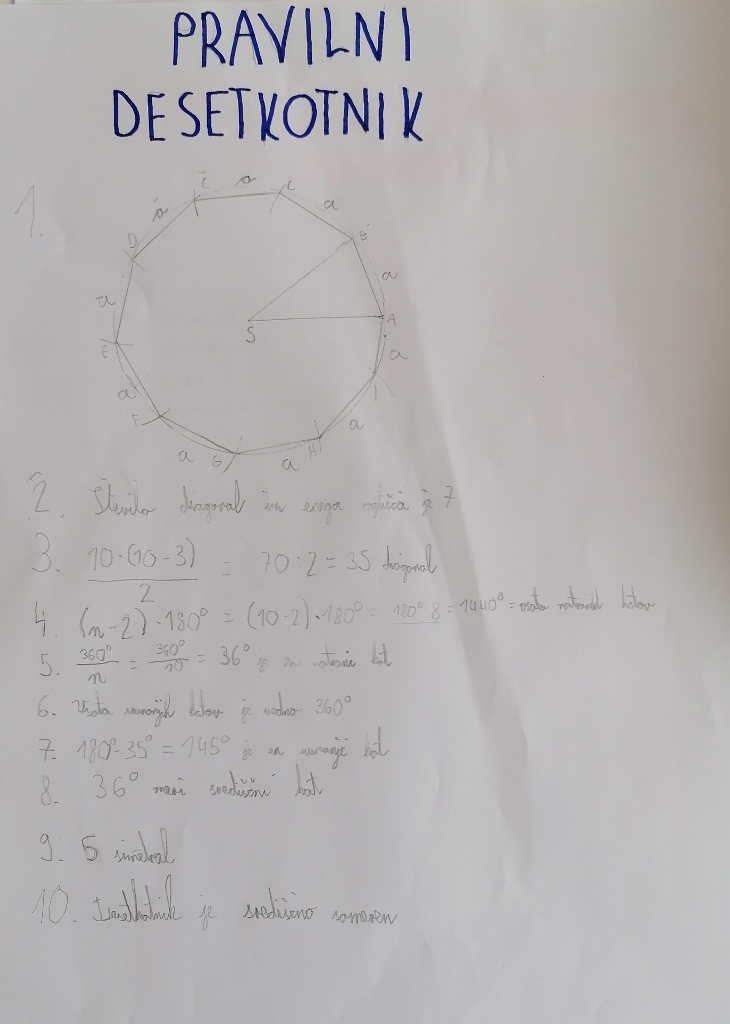 PRAVILNI
DESETKOTNIK
1.
Č a C
a a
D B
a a
S A
E a
a I
F a
a G a H
2. Število diagonal iz enega oglišča je 7
3. 10·(10-3) / 2 = 70:2 = 35 diagonal
4. (n-2)·180° = (10-2)·180° = 180°·8 = 1440° = vsota notranjih kotov
5. 360°/n = 360°/10 = 36° je en notranji kot
6. Vsota zunanjih kotov je vedno 360°
7. 180°-35° = 145° je en zunanji kot
8. 36° meri središčni kot
9. 5 simetral
10. Desetkotnik je središčno someren